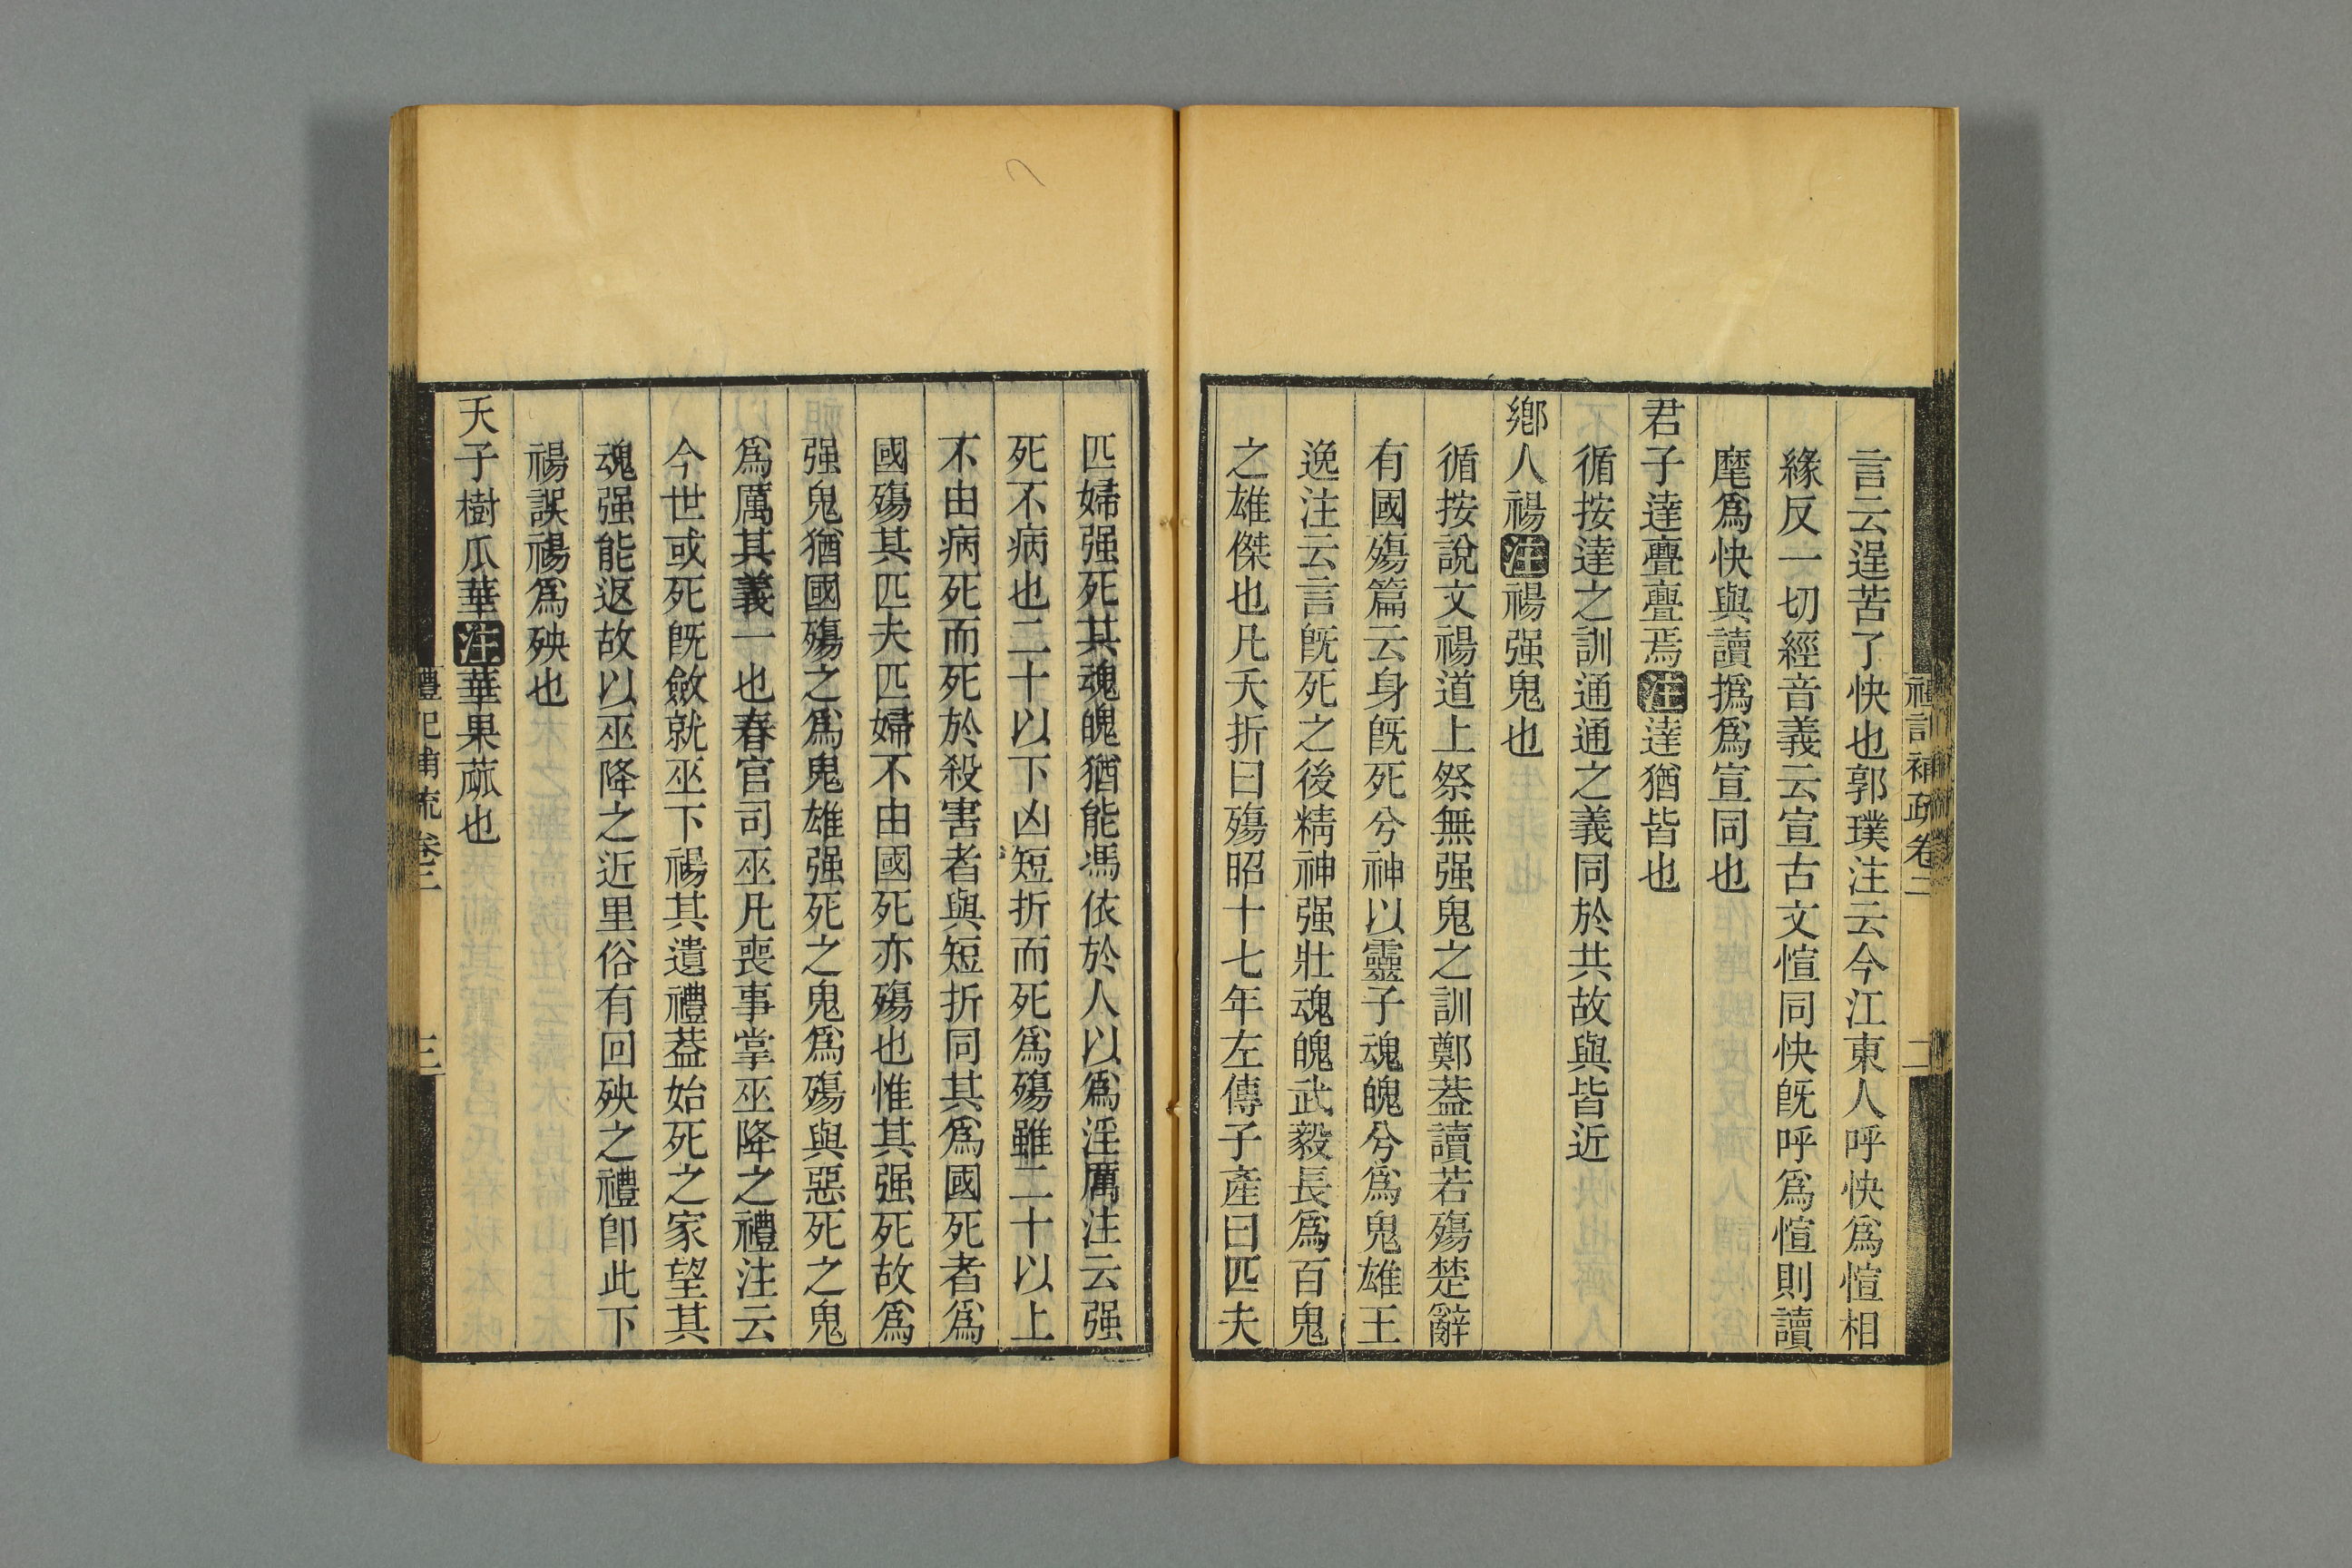 言云逞苦了快也郭璞注云今江東人呼快爲愃相
緣反一切經音義云宣古文愃同快旣呼爲愃則讀
麾爲快與讀撝爲宣同也
君子達亹亹焉注達猶皆也
循按達之訓通通之義同於共故與皆近
鄉人禓注禓强鬼也
循按說文禓道上祭無强鬼之訓鄭葢讀若殤楚辭
有國殤篇云身旣死兮神以靈子魂魄兮爲鬼雄王
逸注云言旣死之後精神强壯魂魄武毅長爲百鬼
之雄傑也凡夭折曰殤昭十七年左傳子產曰匹夫
禮記補疏卷三
二
匹婦强死其魂魄猶能馮依於人以爲淫厲注云强
死不病也二十以下凶短折而死爲殤雖二十以上
不由病死而死於殺害者與短折同其爲國死者爲
國殤其匹夫匹婦不由國死亦殤也惟其强死故爲
强鬼猶國殤之爲鬼雄强死之鬼爲殤與惡死之鬼
爲厲其義一也春官司巫凡喪事掌巫降之禮注云
今世或死旣斂就巫下禓其遺禮葢始死之家望其
魂强能返故以巫降之近里俗有回殃之禮卽此下
禓誤禓爲殃也
天子樹瓜華注華果蓏也
禮記補疏卷三
三